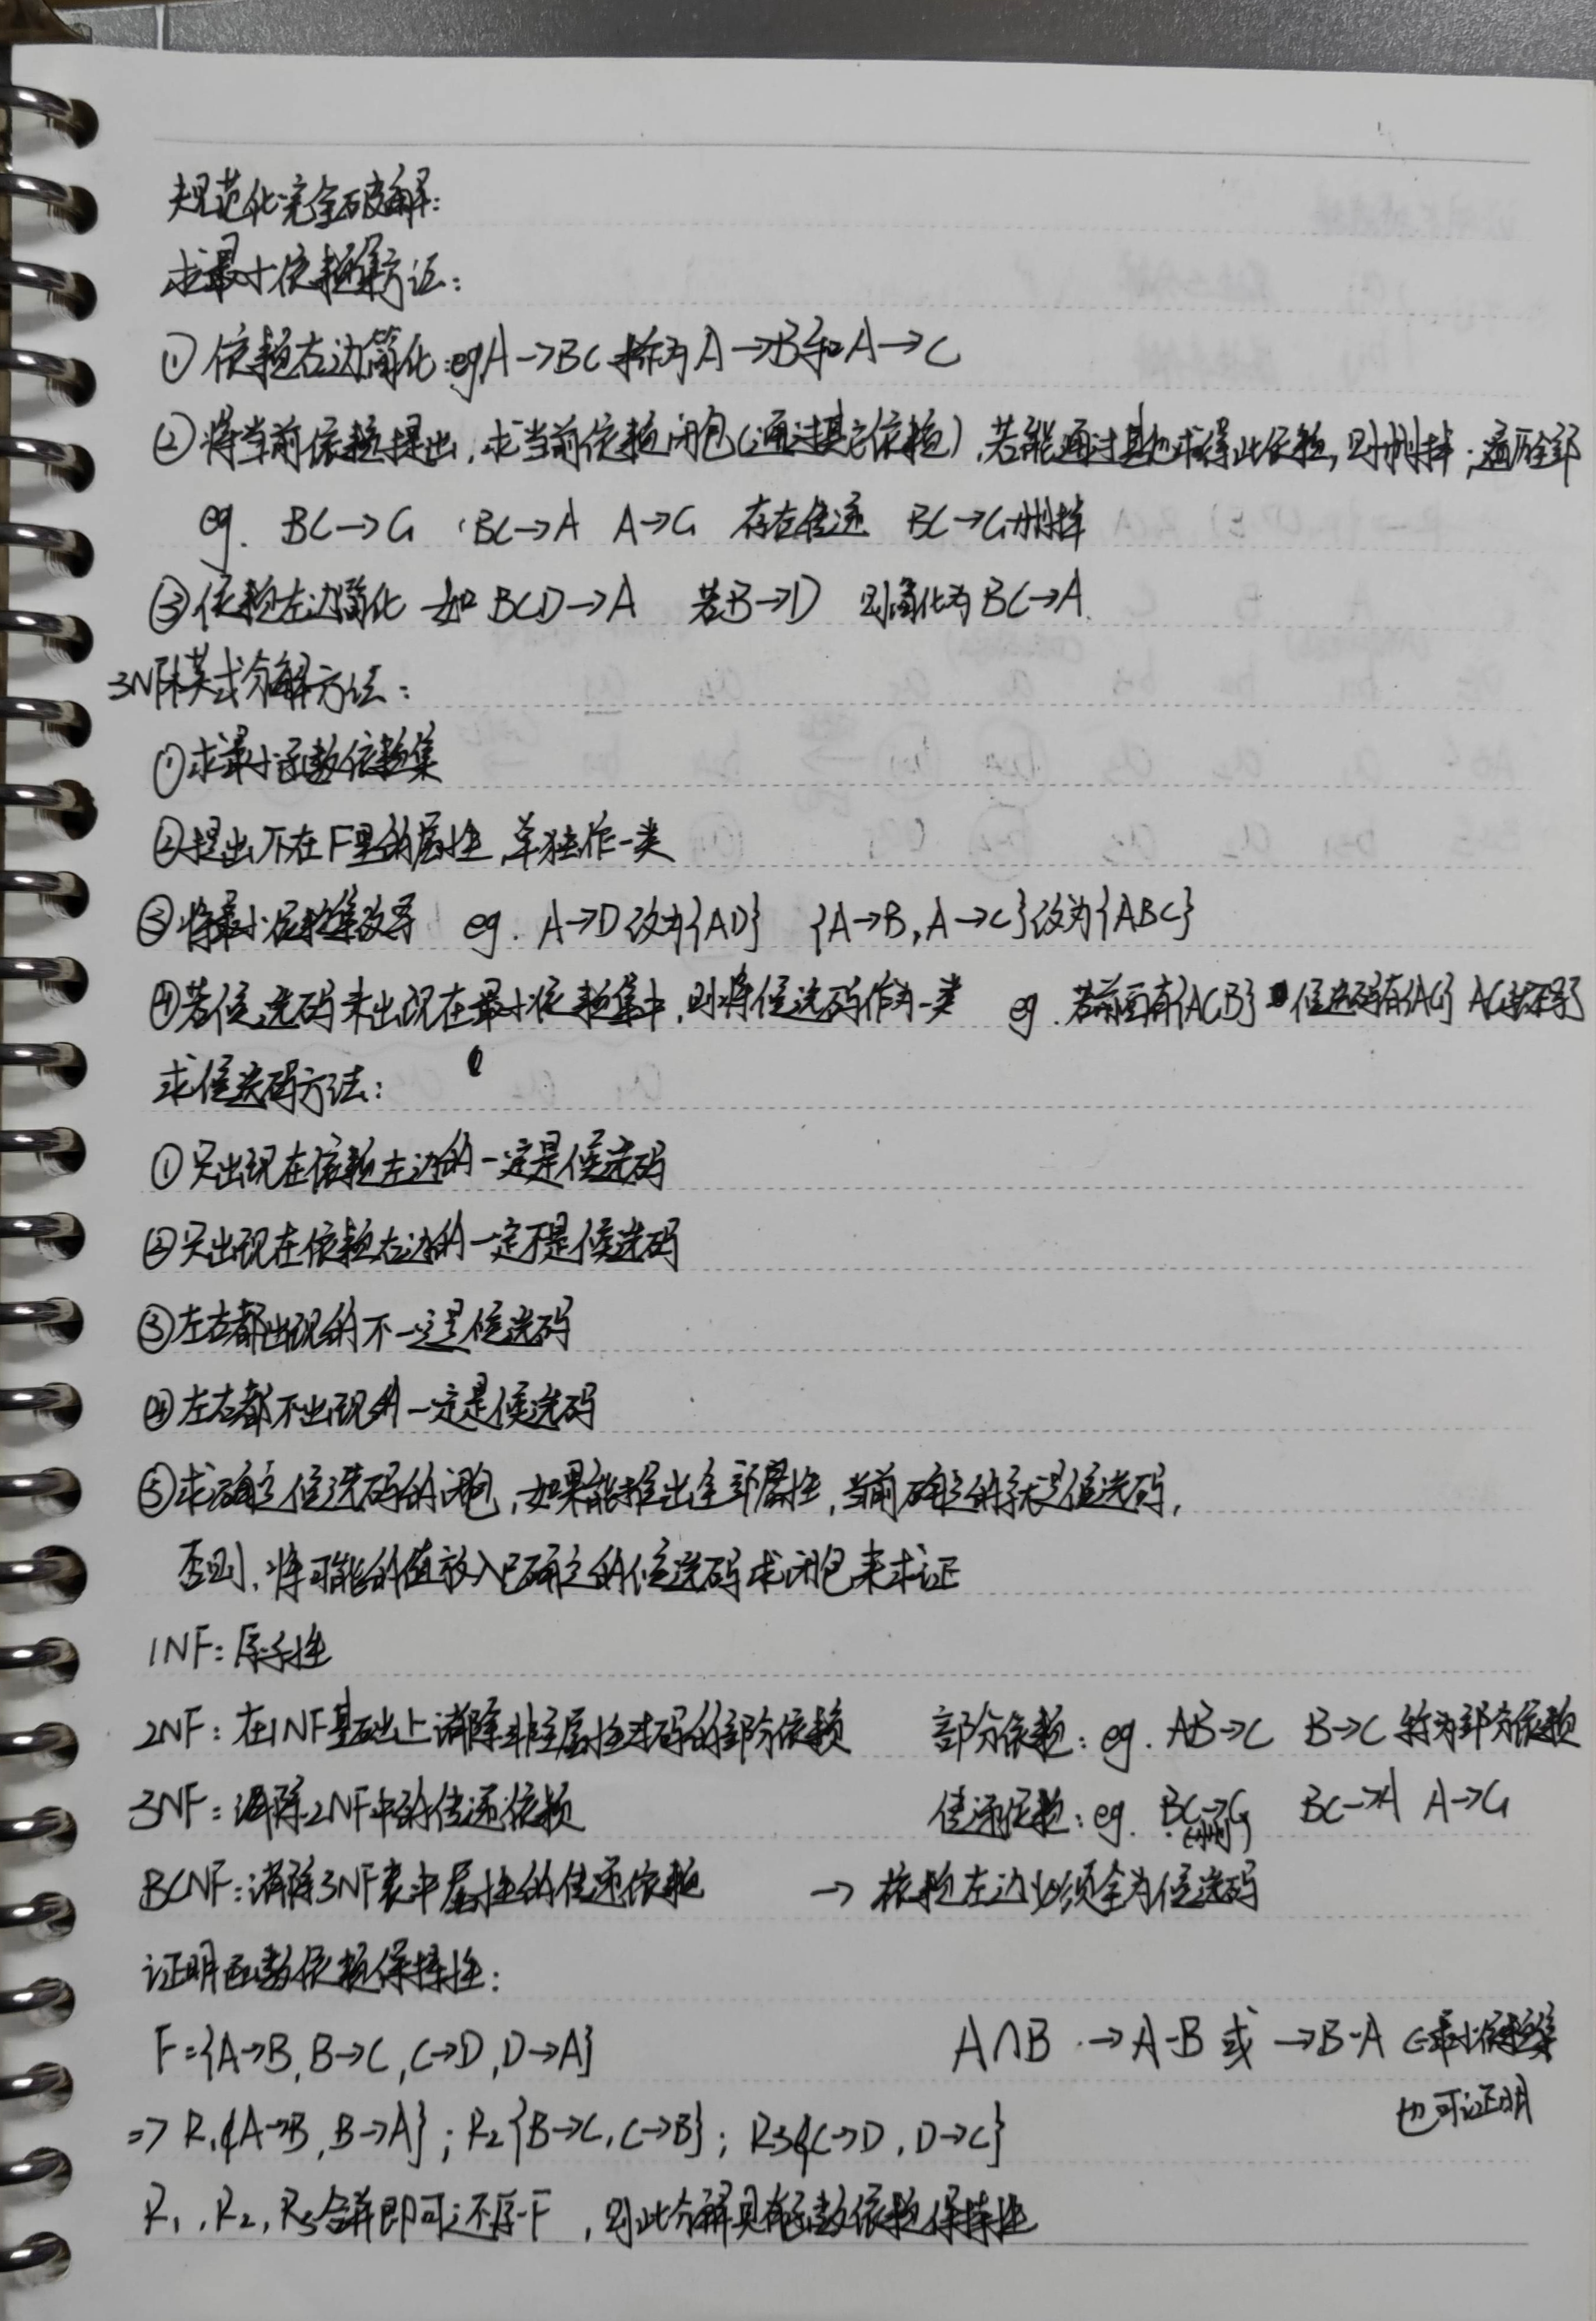 规范化完全破解:
求最小依赖集方法:
① 依赖右边简化:eg A→BC 拆为 A→B和A→C
②将当前依赖提出,求当前依赖闭包(通过其它依赖),若能通过其他求得此依赖,则删掉,遍历全部
eg. BC→G BC→A A→G 存在传递 BC→G删掉
③依赖左边简化 如 BCD→A 若B→D 则简化为 BC→A.
3NF模式分解方法:
①求最小函数依赖集
②提出不在F里的属性,单独作一类
③将最小依赖集改写 eg. A→D 改为{AD} {A→B, A→C}改为{ABC}
④若候选码未出现在最小依赖集中,则将候选码作为一类 eg. 若前面有{ACB} 候选码有{AC} AC
求候选码方法:
①只出现在依赖左边的一定是候选码
②只出现在依赖右边的一定不是候选码
③左右都出现的不一定是候选码
④左右都不出现的一定是候选码
⑤求确定候选码的闭包,如果能推出全部属性,当前确定的就是候选码,
否则,将可能的值放入已确定的候选码求闭包来求证
1NF: 原子性
2NF: 在1NF基础上消除非主属性对码的部分依赖 部分依赖: eg. AB→C B→C 称为部分依赖
3NF: 消除2NF中的传递依赖 传递依赖: eg. BC→G BC→A A→G
(删)
BCNF: 消除3NF表中属性的传递依赖 → 依赖左边必须全为候选码
证明函数依赖保持性:
F={A→B, B→C, C→D, D→A} A∩B →A-B 或 →B-A ∈最小依赖集
也可证明
=> R₁{A→B, B→A}; R₂{B→C, C→B}; R3{C→D, D→C}
R₁, R₂, R₃合并即可还原F ,则此分解具有函数依赖保持性